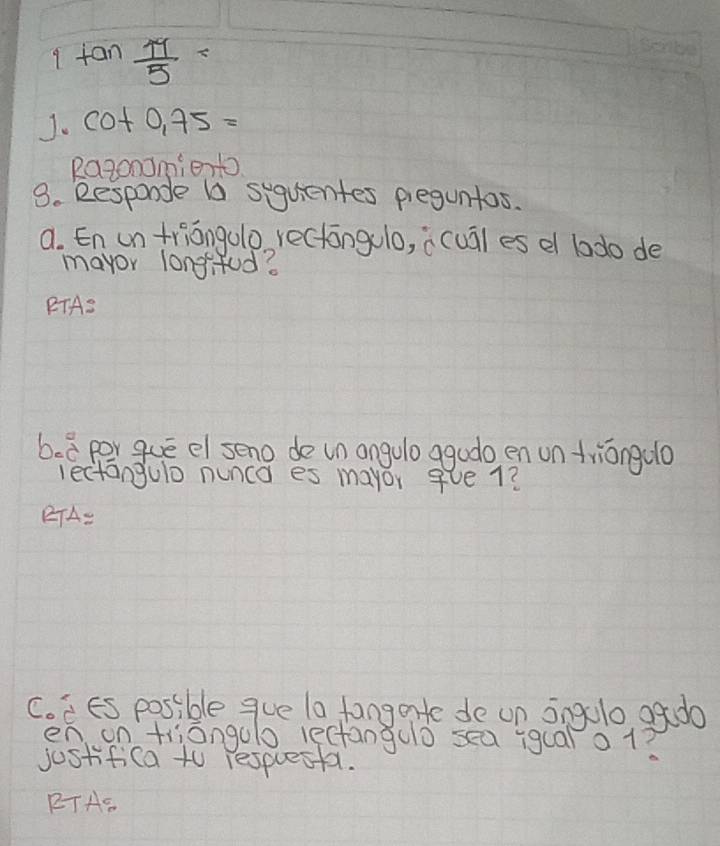 Scribe
i tan π/5 =
J. cot 0,75 =
Razonamiento
8. Responde la siguientes preguntas.
a. En un triángulo rectángulo, ¿cuál es el lado de
mayor longitud?
RTA:
b. ¿por qué el seno de un angulo agudo en un triángulo
rectángulo nunca es mayor que 1?
RTA:
c. ¿Es posible que la tangente de un ángulo agudo
en un triángulo rectangulo sea igual a 1?
justifica tu respuesta.
RTA: